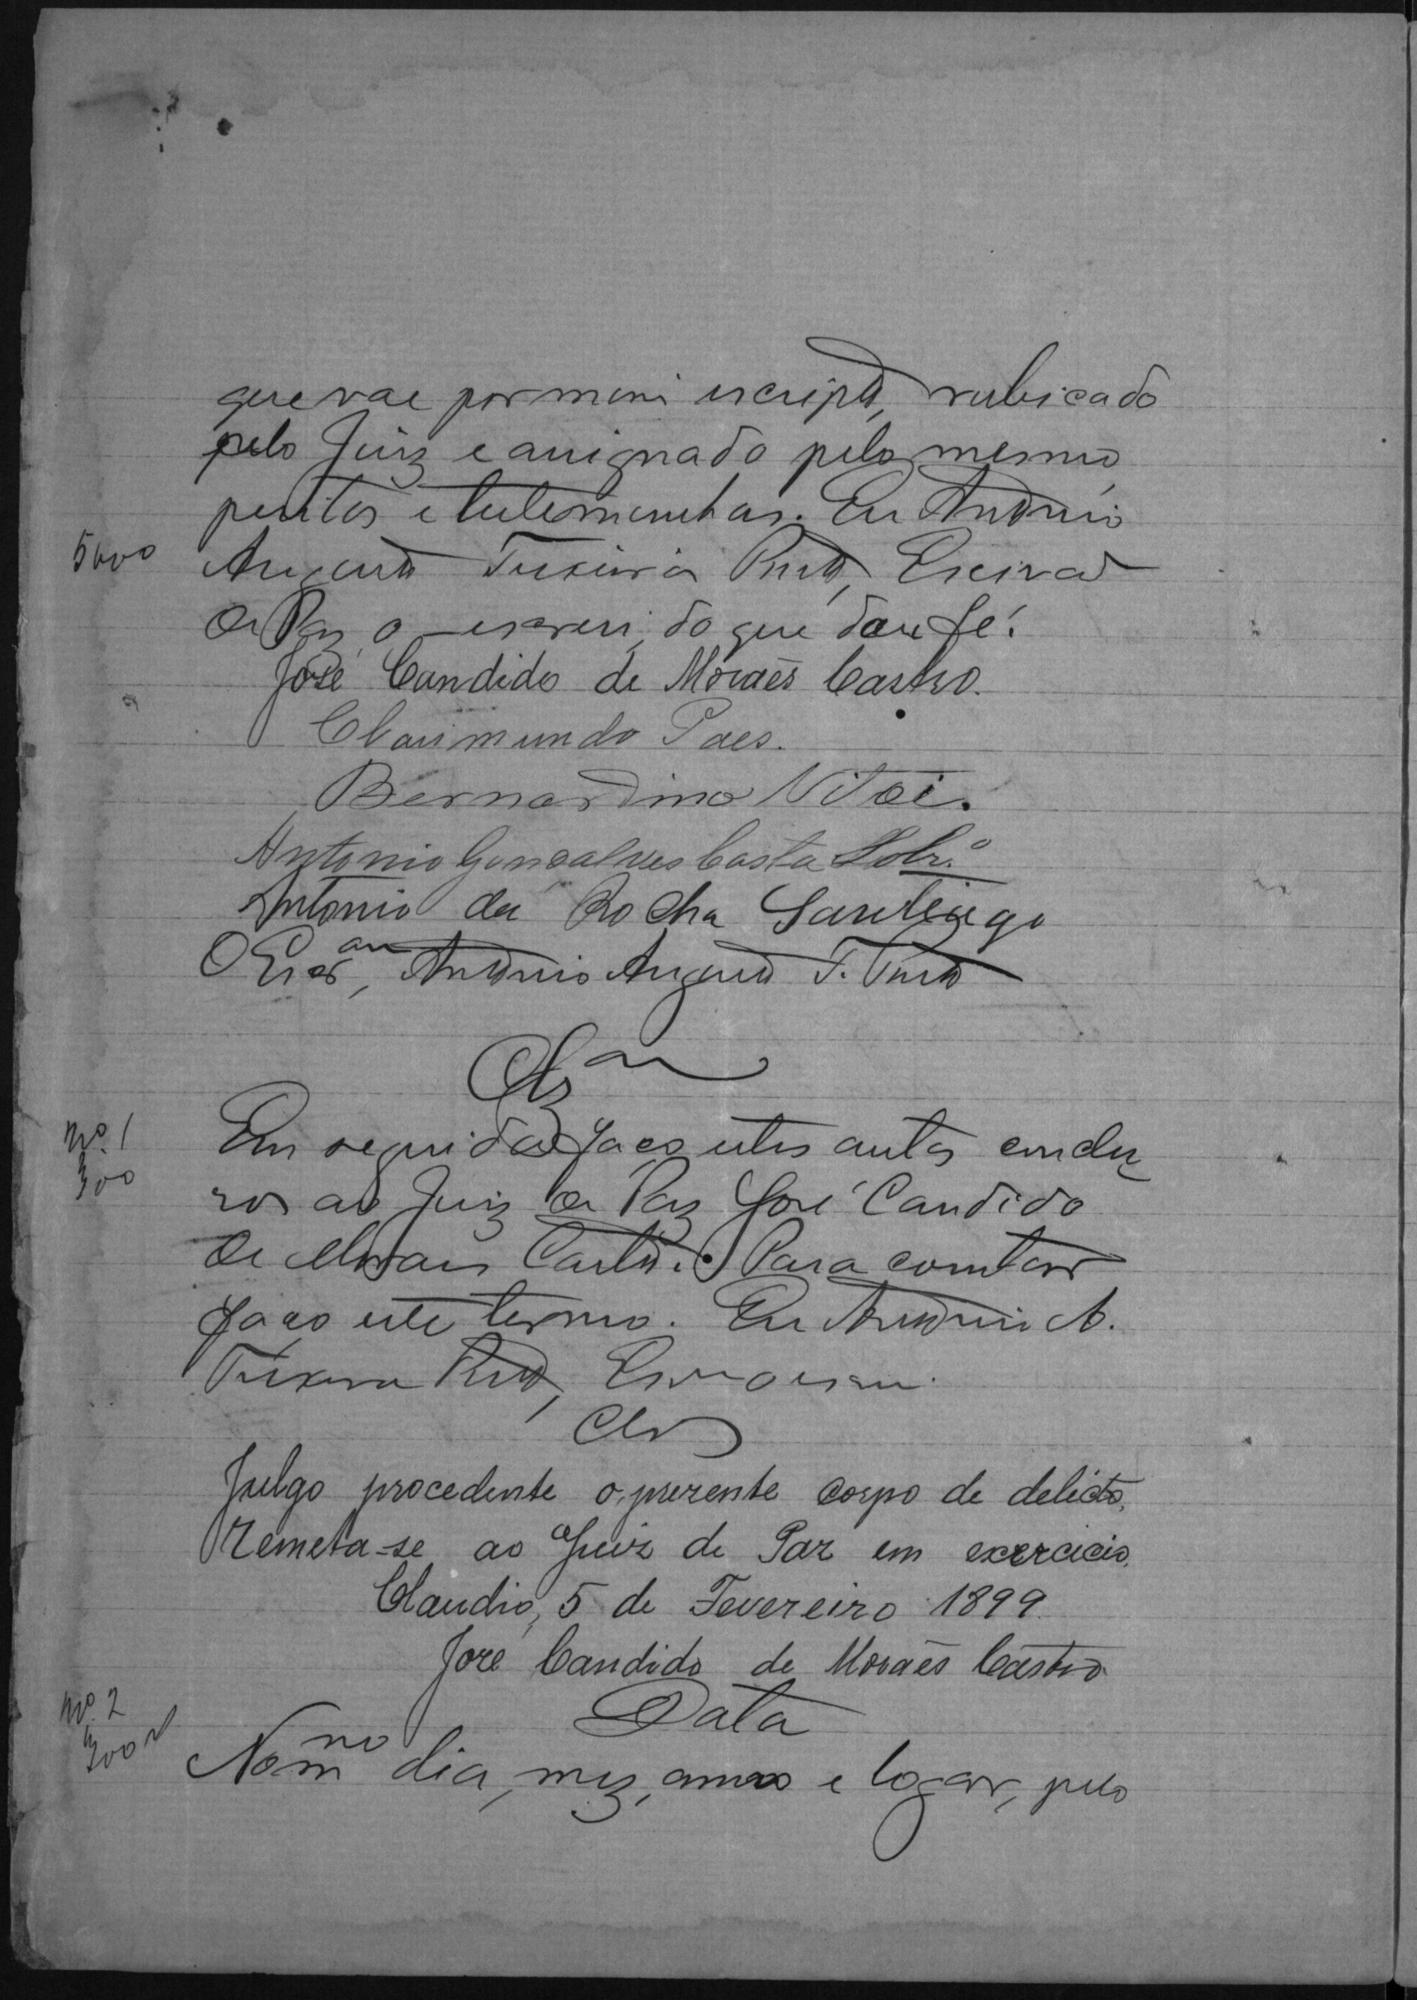 que vae por mim escripto, rubicado
pelo Juiz e assignado pelo mesmo,
peritos e testemunhas. Eu Antonio
5000 Augusto Teixeira Pinto, Escrivão
de Paz o escrevi, do que dou fé.
José Candido de Moraes Castro.
Clarimundo Paes.
Bernardino Vitoi.
Antonio Gonsalves Costa Sobr.º
Antonio da Rocha Santiago
O Escr.am, Antonio Augusto T. Pinto
Clzam
Nº. 1 Em seguida faço estes autos conclu
300 sos ao Juiz de Paz José Candido
de Moraes Castro. Para constar
faço este termo. Eu Antonio A.
Teixeira Pinto, Escrivão
Clos
Julgo procedente o prezente corpo de delicto,
Remeta-se ao Juiz de Paz em exercicio.
Claudio, 5 de Fevereiro 1899.
José Candido de Moraes Castro
Nº. 2 Data
300 No mmo dia, mez, anno e logar, pelo